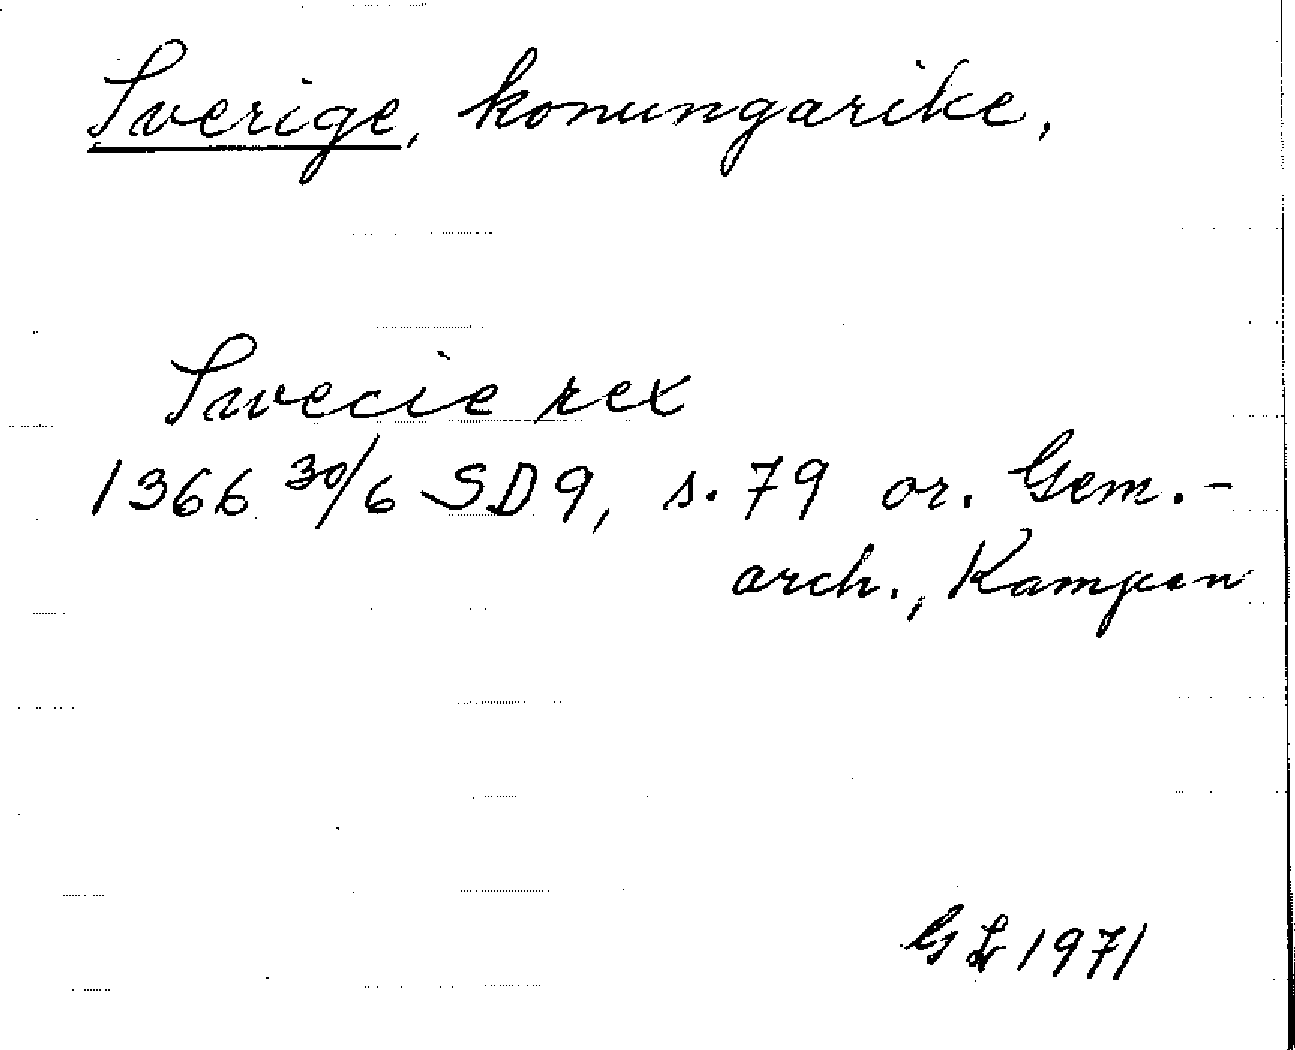 Sverige, konungarike,
Swecie rex
1366 30/6 SD9, s. 79 or. Gem.-
arch., Kampen
GL 1971